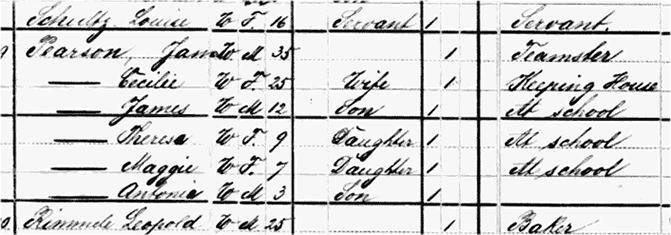 Schultz Louise W F. 16 Servant 1 Servant.
9 Pearson, James W M 35 1 Teamster
—— Cecilie W F. 25 Wife 1 Keeping House
—— James W M 12 Son 1 At school
—— Theresa W F. 9 Daughter 1 At school
—— Maggie W F. 7 Daughter 1 At school
—— Antonia W M 3 Son 1
0. Leopold W M 25 1 Baker